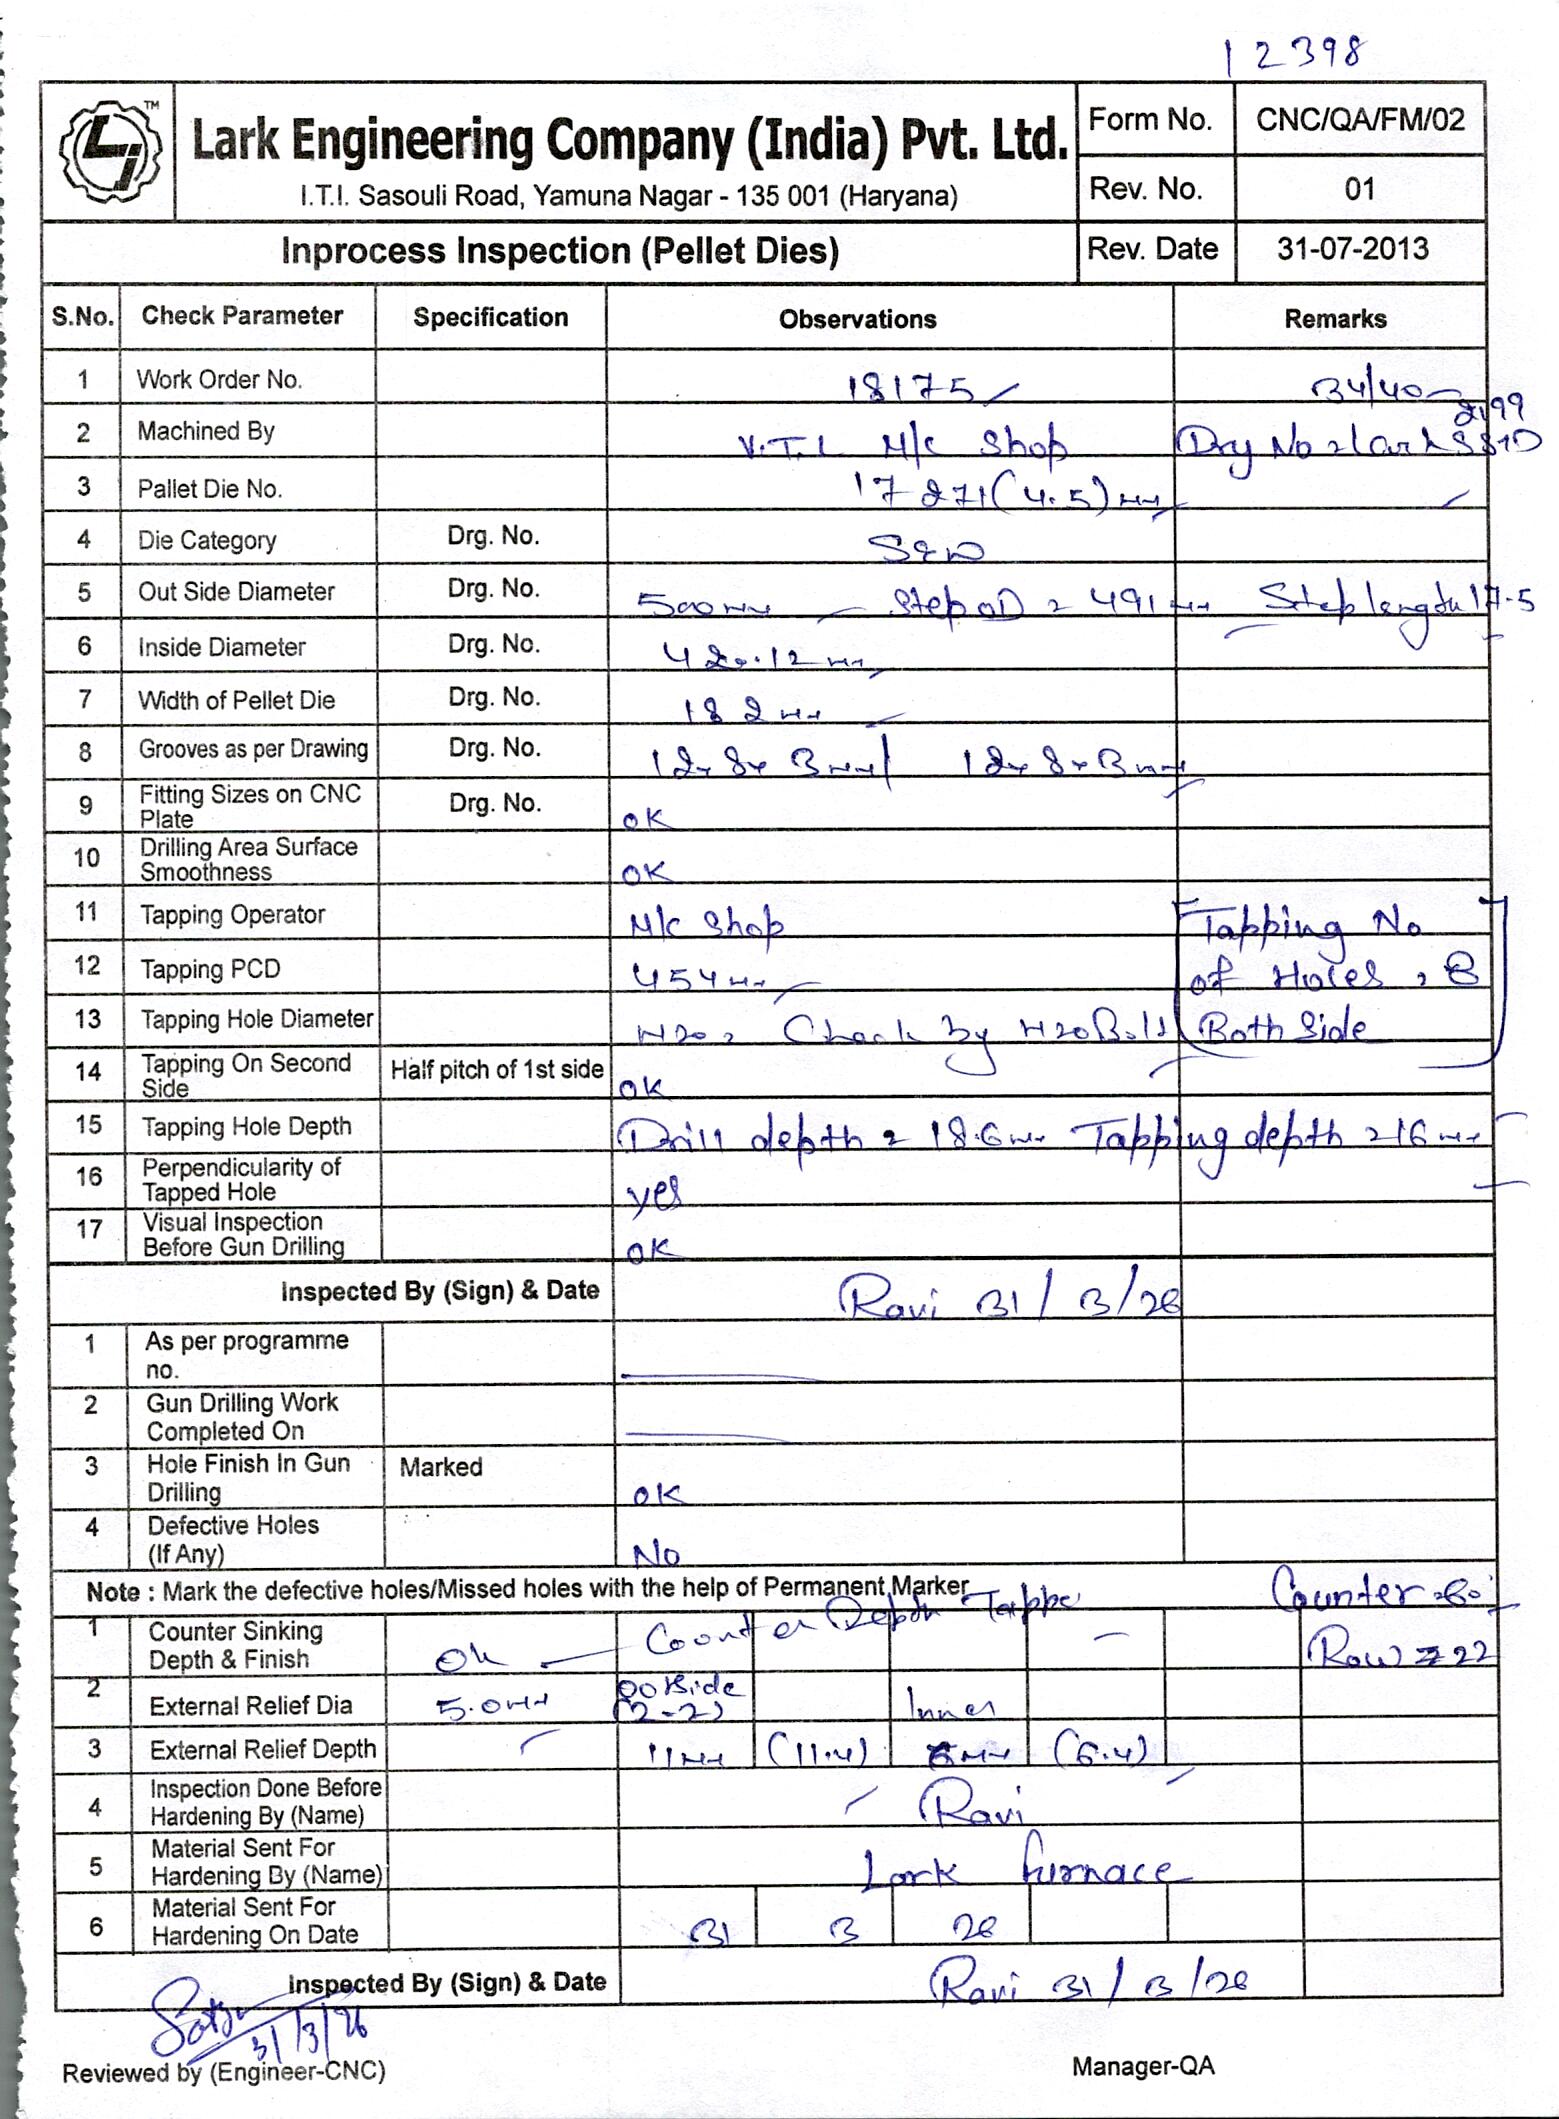 12398
Lark Engineering Company (India) Pvt. Ltd.
I.T.I. Sasouli Road, Yamuna Nagar - 135 001 (Haryana)
Form No. CNC/QA/FM/02
Rev. No. 01
Inprocess Inspection (Pellet Dies) Rev. Date 31-07-2013
S.No. Check Parameter Specification Observations Remarks
1 Work Order No. 18175 34/40
2 Machined By V.T.L M/c Shop
3 Pallet Die No. 17271(4.5)mm
4 Die Category Drg. No.
5 Out Side Diameter Drg. No. 500mm Step OD = 491mm Step length 17.5
6 Inside Diameter Drg. No. 420.12mm
7 Width of Pellet Die Drg. No. 182mm
8 Grooves as per Drawing Drg. No. 12x8x3mm/ 12x8x3mm
9 Fitting Sizes on CNC Plate Drg. No. OK
10 Drilling Area Surface Smoothness OK
11 Tapping Operator M/c Shop Tapping No
12 Tapping PCD 454mm of Holes = 8
13 Tapping Hole Diameter M20 = Check by M20 Bolt Both Side
14 Tapping On Second Side Half pitch of 1st side OK
15 Tapping Hole Depth Drill depth = 18.6mm Tapping depth = 16mm
16 Perpendicularity of Tapped Hole yes
17 Visual Inspection Before Gun Drilling OK
Inspected By (Sign) & Date Ravi 31/3/26
1 As per programme no.
2 Gun Drilling Work Completed On
3 Hole Finish In Gun Drilling Marked OK
4 Defective Holes (If Any) No
Note : Mark the defective holes/Missed holes with the help of Permanent Marker
1 Counter Sinking Depth & Finish Ok Counter Depth Row = 22
2 External Relief Dia 5.0mm (2-2) Inner
3 External Relief Depth 11mm (11.4) 6mm (6.4)
4 Inspection Done Before Hardening By (Name) Ravi
5 Material Sent For Hardening By (Name) Lark furnace
6 Material Sent For Hardening On Date 31 3 26
Inspected By (Sign) & Date Ravi 31/3/26
31/3/26
Reviewed by (Engineer-CNC) Manager-QA